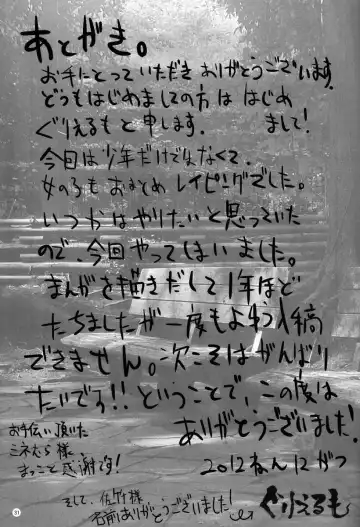 あとがき。
お手にとっていただきありがとうございます。
どうもはじめましての方は はじめ
まして!
ぐりえるもと申します。
今回は少年だけでなくて、
女の子もおまとめレイピングでした。
いつかはやりたいと思っていた
ので、今回やってしまいました。
まんがを描きだして1年ほど
たちましたが一度もよゆう入稿
できません。次こそはがんばり
たいです!!ということで、この度は
ありがとうございました!
お手伝い頂いた
ミネむら様、
まっこと感謝です!
2012ねん12がつ
そして、佐竹様
名前ありがとうございました!
ぐりえるも
31